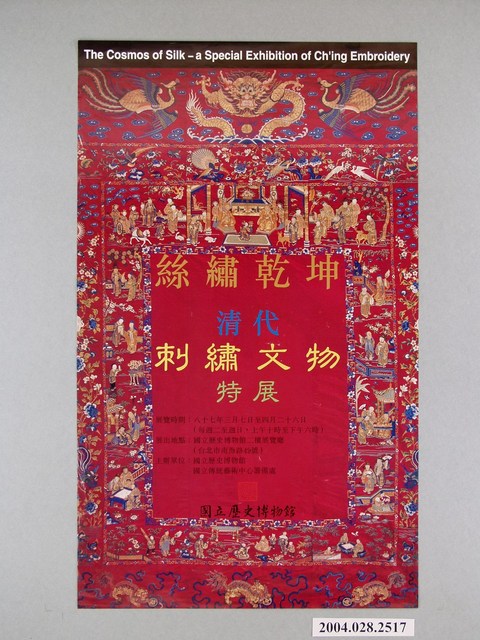 The Cosmos of Silk – a Special Exhibition of Ch'ing Embroidery
絲繡乾坤
清代
刺繡文物
特展
展覽時間：八十七年三月七日至四月二十六日
（每週二至週日，上午十時至下午六時）
展出地點：國立歷史博物館二樓展覽廳
（台北市南海路49號）
主辦單位：國立歷史博物館
國立傳統藝術中心籌備處
國立歷史博物館
2004.028.2517